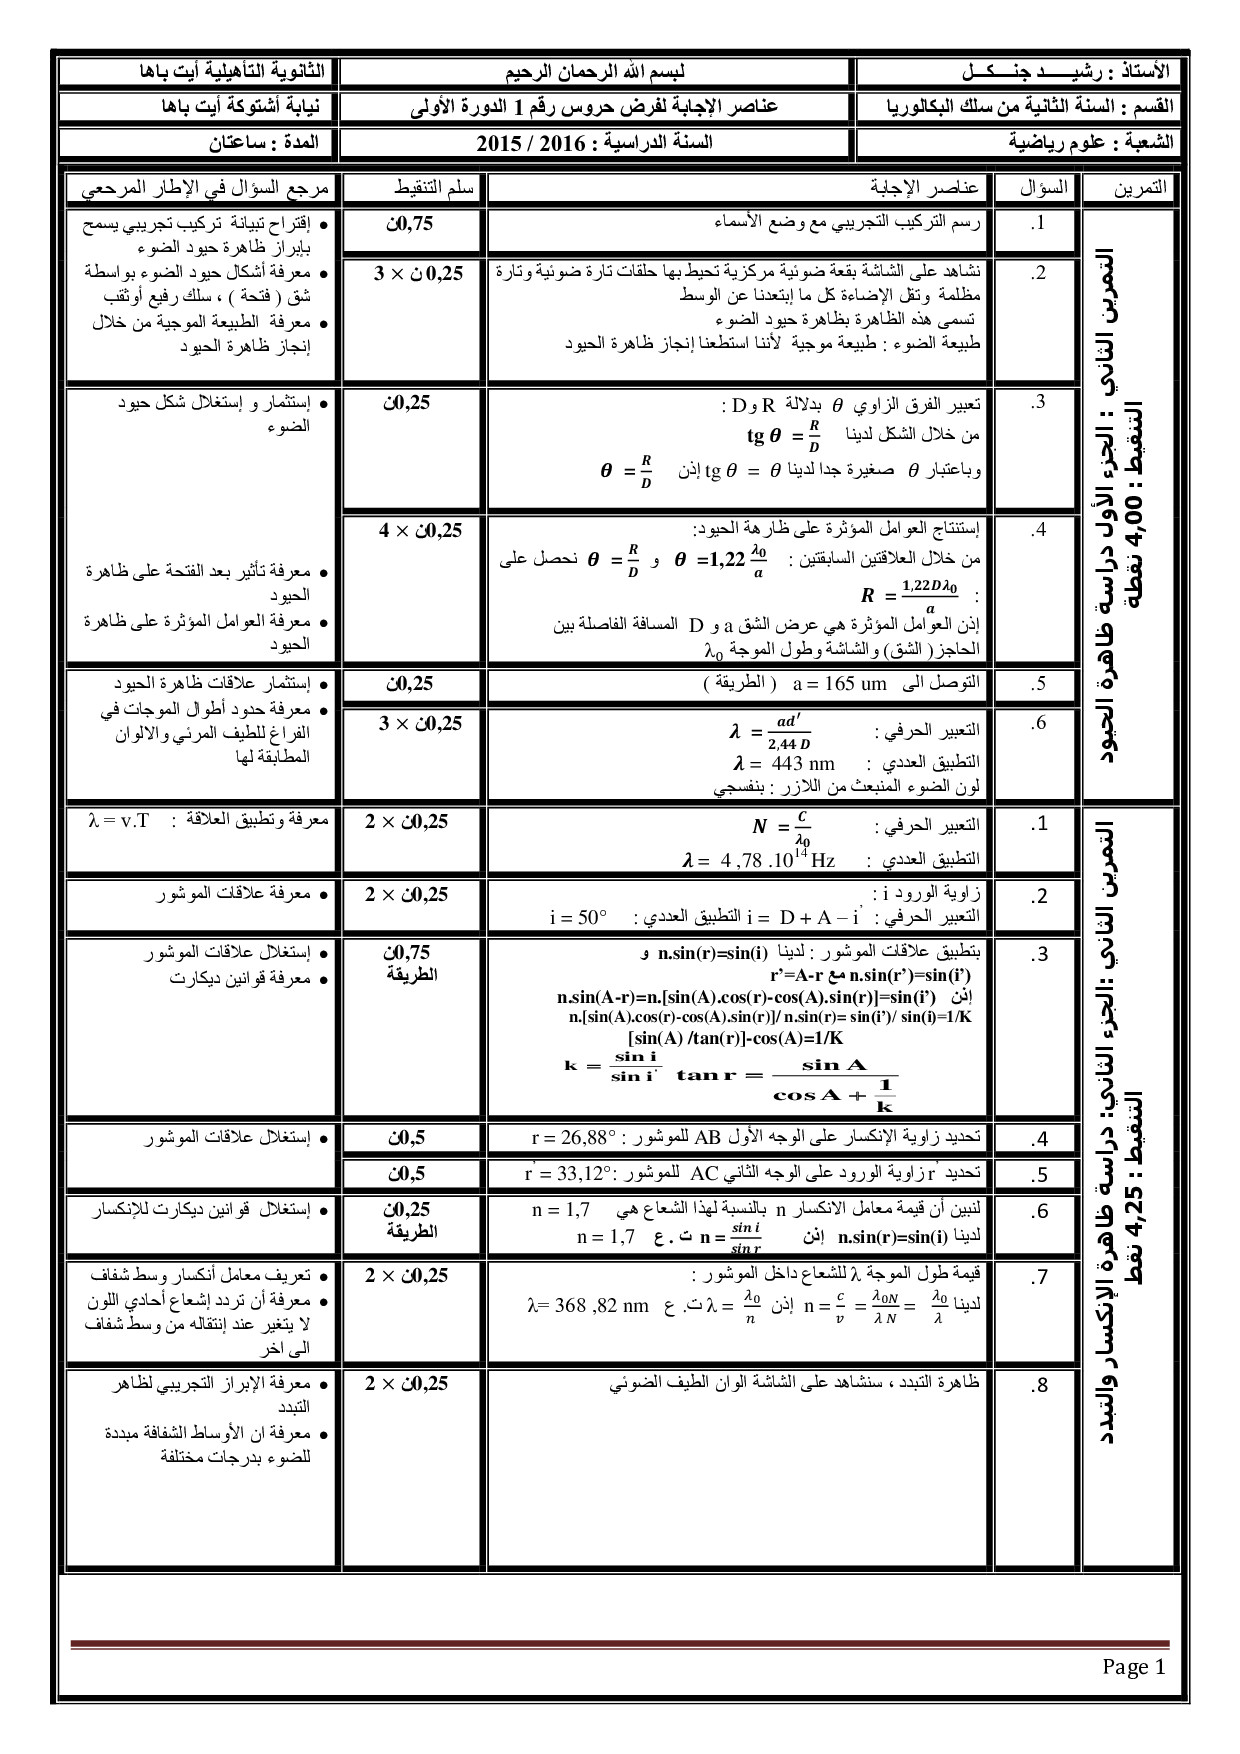 الأستاذ : رشيـــــد جنـــكــل
لبسم الله الرحمان الرحيم
الثانوية التأهيلية أيت باها
القسم : السنة الثانية من سلك البكالوريا
عناصر الإجابة لفرض حروس رقم 1 الدورة الأولى
نيابة أشتوكة أيت باها
الشعبة : علوم رياضية
السنة الدراسية : 2016 / 2015
المدة : ساعتان
التمرين
السؤال
عناصر الإجابة
سلم التنقيط
مرجع السؤال في الإطار المرحعي
التمرين الثاني : الجزء الأول دراسة ظاهرة الحيود
التنقيط : 4,00 نقطة
1.
رسم التركيب التجريبي مع وضع الأسماء
0,75ن
2.
نشاهد على الشاشة بقعة ضوئية مركزية تحيط بها حلقات تارة ضوئية وتارة
مظلمة وتقل الإضاءة كل ما إبتعدنا عن الوسط
تسمى هذه الظاهرة بظاهرة حيود الضوء
طبيعة الضوء : طبيعة موجية لأننا استطعنا إنجاز ظاهرة الحيود
0,25 ن × 3
• إقتراح تبيانة تركيب تجريبي يسمح
بإبراز ظاهرة حيود الضوء
• معرفة أشكال حيود الضوء بواسطة
شق ( فتحة ) ، سلك رفيع أوثقب
• معرفة الطبيعة الموجية من خلال
إنجاز ظاهرة الحيود
3.
تعبير الفرق الزاوي θ بدلالة R و D :
من خلال الشكل لدينا tg θ = R/D
وباعتبار θ صغيرة جدا لدينا tg θ = θ إذن θ = R/D
0,25ن
• إستثمار و إستغلال شكل حيود
الضوء
4.
إستنتاج العوامل المؤثرة على ظارهة الحيود:
من خلال العلاقتين السابقتين : θ =1,22 λ0/a و θ = R/D نحصل على
: R = 1,22Dλ0/a
إذن العوامل المؤثرة هي عرض الشق a و D المسافة الفاصلة بين
الحاجز( الشق) والشاشة وطول الموجة λ0
0,25ن × 4
• معرفة تأثير بعد الفتحة على ظاهرة
الحيود
• معرفة العوامل المؤثرة على ظاهرة
الحيود
5.
التوصل الى a = 165 um ( الطريقة )
0,25ن
6.
التعبير الحرفي : λ = ad′/2,44 D
التطبيق العددي : λ = 443 nm
لون الضوء المنبعث من اللازر : بنفسجي
0,25ن × 3
• إستثمار علاقات ظاهرة الحيود
• معرفة حدود أطوال الموجات في
الفراغ للطيف المرئي والالوان
المطابقة لها
التمرين الثاني :الجزء الثاني: دراسة ظاهرة الإنكسار والتبدد
التنقيط : 4,25 نقط
1.
التعبير الحرفي : N = C/λ0
التطبيق العددي : λ = 4 ,78 .10^14 Hz
0,25ن × 2
معرفة وتطبيق العلاقة : λ = v.T
2.
زاوية الورود i :
التعبير الحرفي : i = D + A – i' التطبيق العددي : i = 50°
0,25ن × 2
• معرفة علاقات الموشور
3.
بتطبيق علاقات الموشور : لدينا n.sin(r)=sin(i) و
n.sin(r’)=sin(i’) مع r’=A-r
إذن n.sin(A-r)=n.[sin(A).cos(r)-cos(A).sin(r)]=sin(i’)
n.[sin(A).cos(r)-cos(A).sin(r)]/ n.sin(r)= sin(i’)/ sin(i)=1/K
[sin(A) /tan(r)]-cos(A)=1/K
k = sin i/sin i' tan r = sin A/(cos A + 1/k)
0,75ن
الطريقة
• إستغلال علاقات الموشور
• معرفة قوانين ديكارت
4.
تحديد زاوية الإنكسار على الوجه الأول AB للموشور : r = 26,88°
0,5ن
• إستغلال علاقات الموشور
5.
تحديد r' زاوية الورود على الوجه الثاني AC للموشور : r' = 33,12°
0,5ن
6.
لنبين أن قيمة معامل الانكسار n بالنسبة لهذا الشعاع هي n = 1,7
لدينا n.sin(r)=sin(i) إذن n = sin i/sin r ت . ع n = 1,7
0,25ن
الطريقة
• إستغلال قوانين ديكارت للإنكسار
7.
قيمة طول الموجة λ للشعاع داخل الموشور :
لدينا n = c/v = λ0N/λ N = λ0/λ إذن λ = λ0/n ت. ع λ= 368 ,82 nm
0,25ن × 2
• تعريف معامل أنكسار وسط شفاف
• معرفة أن تردد إشعاع أحادي اللون
لا يتغير عند إنتقاله من وسط شفاف
الى اخر
8.
ظاهرة التبدد ، سنشاهد على الشاشة الوان الطيف الضوئي
0,25ن × 2
• معرفة الإبراز التجريبي لظاهر
التبدد
• معرفة ان الأوساط الشفافة مبددة
للضوء بدرجات مختلفة
Page 1